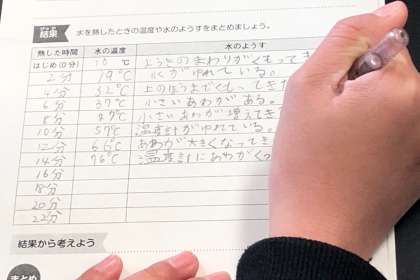 結果 水を熱したときの温度や水のようすをまとめましょう。
熱した時間 水の温度 水のようす
はじめ(0分) 10 ℃ ようきのまわりがくもってき
2分 19℃ 水がゆれている。
4分 32℃ 上のほうまでくもってきた
6分 37℃ 小さいあわがある。
8分 47℃ 小さいあわが増えてき
10分 57℃ 温度計がゆれている。
12分 66℃ あわが大きくなってき
14分 76℃ 温度計にあわがくっ
16分
18分
20分
22分
結果から考えよう
まとめ